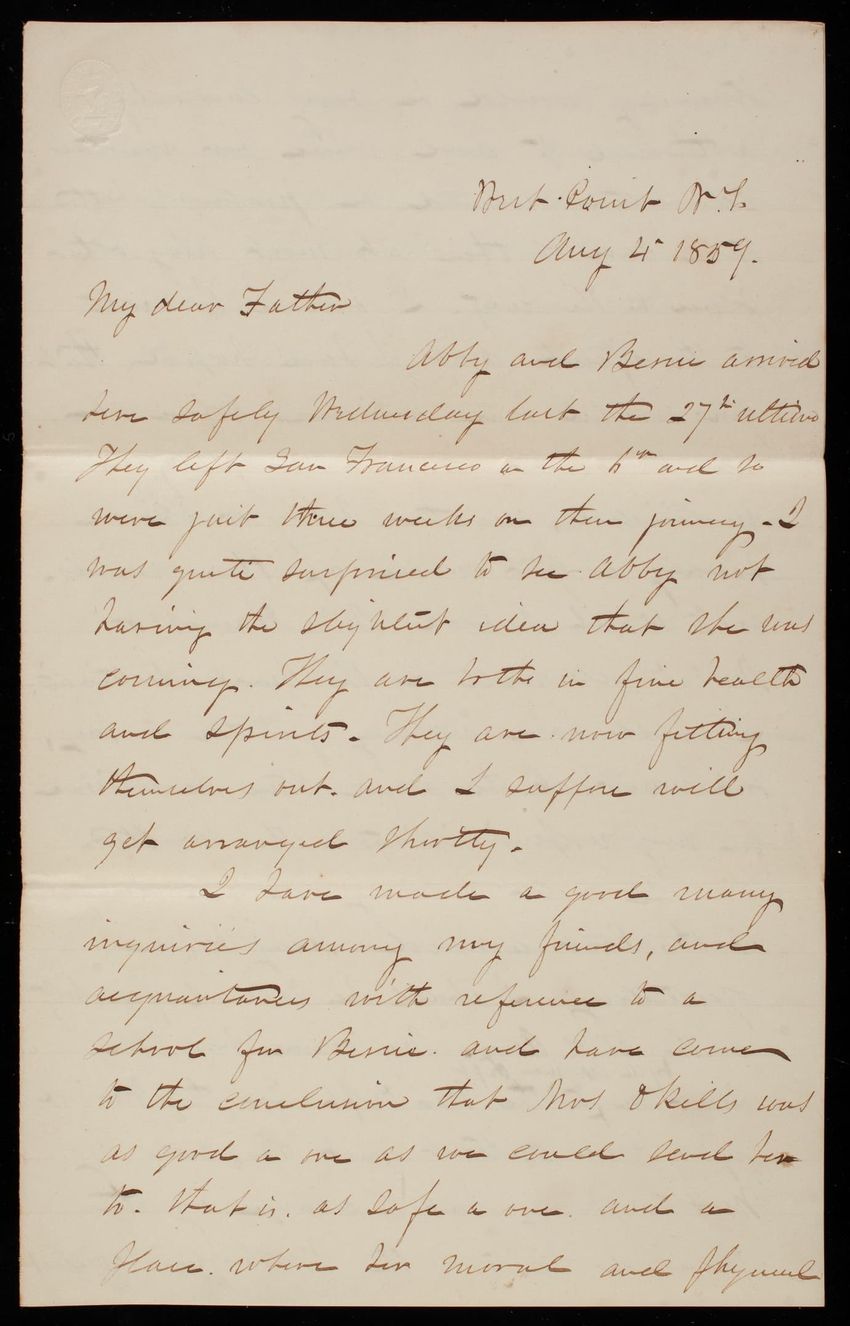 West Point N.Y.
Aug 4 1859.
My dear Father
Abby and Bessie arrived
here safely Wednesday last the 27th ultimo
They left San Francisco on the 6th and so
were just three weeks on their journey - I
was quite surprised to see Abby not
having the slightest idea that she was
coming. They are both in fine health
and spirits. They are now fitting
themselves out. and I suppose will
get arranged shortly.
I have made a good many
inquiries among my friends, and
acquaintances with reference to a
school for Bessie. and have come
to the conclusion that Mrs Okills was
as good a one as we could send her
to. that is. as safe a one. and a
place. where her moral and physical